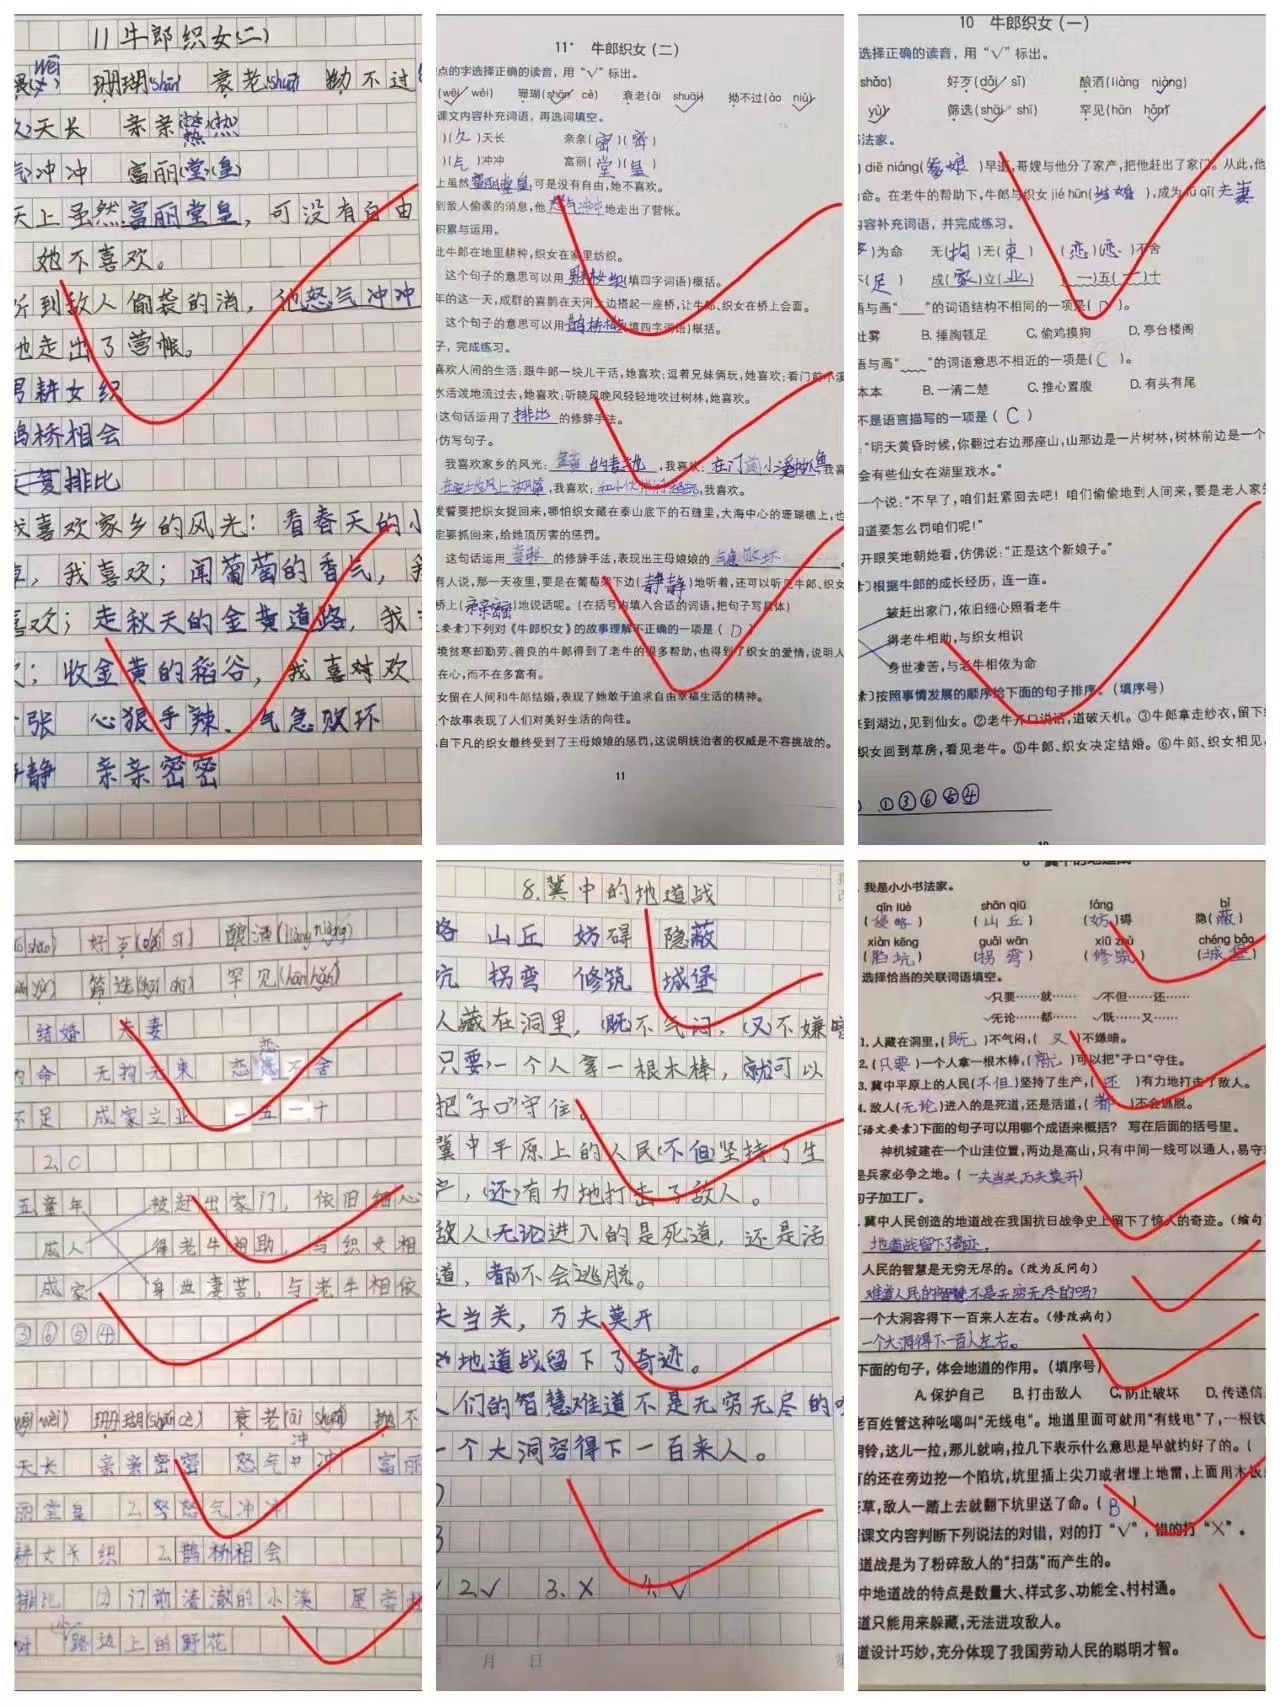 11 牛郎织女(二)
珊瑚(shān) 衰老(shuāi) 拗不过
天长 亲亲热热
气冲冲 富丽(堂)(皇)
天上虽然富丽堂皇，可没有自由
她不喜欢。
听到敌人偷袭的消，他怒气冲冲
地走出了营帐。
男耕女织
鹊桥相会
排比
我喜欢家乡的风光：看春天的小
，我喜欢；闻葡萄的香气，我
喜欢；走秋天的金黄道路，我
；收金黄的稻谷，我喜对欢
张 心狠手辣、气急败坏
静静 亲亲密密
11* 牛郎织女（二）
点的字选择正确的读音，用“√”标出。
(wēi wèi) 珊瑚(shān cè) 衰老(āi shuāi) 拗不过(ào niù)
课文内容补充词语，再选词填空。
)(久)天长 亲亲(密)(密)
)(气)冲冲 富丽(堂)(皇)
上虽然富丽堂皇,可是没有自由,她不喜欢。
到敌人偷袭的消息,他怒气冲冲地走出了营帐。
积累与运用。
此牛郎在地里耕种,织女在家里纺织。
这个句子的意思可以用男耕女织(填四字词语)概括。
年的这一天,成群的喜鹊在天河上边搭起一座桥,让牛郎、织女在桥上会面。
这个句子的意思可以用鹊桥相会(填四字词语)概括。
子，完成练习。
喜欢人间的生活:跟牛郎一块儿干活,她喜欢;逗着兄妹俩玩,她喜欢;看门前小溪
水活泼地流过去,她喜欢;听晓风晚风轻轻地吹过树林,她喜欢。
这句话运用了排比的修辞手法。
仿写句子。
我喜欢家乡的风光: ,我喜欢;在门前小溪 我喜
,我喜欢; ,我喜欢。
发誓要把织女捉回来,哪怕织女藏在泰山底下的石缝里,大海中心的珊瑚礁上,也
定要抓回来,给她顶厉害的惩罚。
这句话运用 的修辞手法,表现出王母娘娘的气急败坏。
有人说,那一天夜里,要是在葡萄架下边(静静)地听着,还可以听见牛郎、织女
桥上(亲亲密密)地说话呢。(在括号内填入合适的词语,把句子写具体)
文要素]下列对《牛郎织女》的故事理解不正确的一项是( D )
境贫寒却勤劳、善良的牛郎得到了老牛的很多帮助,也得到了织女的爱情,说明人
在心,而不在多富有。
女留在人间和牛郎结婚,表现了她敢于追求自由幸福生活的精神。
个故事表现了人们对美好生活的向往。
自下凡的织女最终受到了王母娘娘的惩罚,这说明统治者的权威是不容挑战的。
11
10 牛郎织女（一）
选择正确的读音，用“√”标出。
shǎo) 好歹(dǎi sǐ) 酿酒(liàng niàng)
yù) 筛选(shāi shī) 罕见(hān hǎn)
法家。
diē niáng(爹娘)早逝,哥嫂与他分了家产,把他赶出了家门。从此,他
命。在老牛的帮助下,牛郎与织女 jié hūn(结婚),成为 fū qī(夫妻
内容补充词语，并完成练习。
)为命 无(拘)无(束) (恋)(恋)不舍
(足) 成(家)立(业) (一)五(一)十
语与画“____”的词语结构不相同的一项是( D )。
吐雾 B. 捶胸顿足 C. 偷鸡摸狗 D. 亭台楼阁
语与画“﹏﹏”的词语意思不相近的一项是( C )。
本本 B. 一清二楚 C. 推心置腹 D. 有头有尾
不是语言描写的一项是( C )
:“明天黄昏时候,你翻过右边那座山,山那边是一片树林,树林前边是一个
会有些仙女在湖里戏水。”
一个说:“不早了,咱们赶紧回去吧!咱们偷偷地到人间来,要是老人家
知道要怎么罚咱们呢!”
开眼笑地朝她看,仿佛说:“正是这个新娘子。”
]根据牛郎的成长经历，连一连。
被赶出家门,依旧细心照看老牛
得老牛相助,与织女相识
身世凄苦,与老牛相依为命
]按照事情发展的顺序给下面的句子排序。(填序号)
来到湖边,见到仙女。②老牛开口说话,道破天机。③牛郎拿走纱衣,留下
织女回到草房,看见老牛。⑤牛郎、织女决定结婚。⑥牛郎、织女相见,
①③⑥⑤④
10
shǎo) 好歹(dǎi sǐ) 酿酒(liàng niàng)
yù) 筛选(shāi shī) 罕见(hān hǎn)
结婚 夫妻
为命 无拘无束 恋恋不舍
不足 成家立业 一五一十
2.C
童年 被赶出家门，依旧细心
成人 得老牛相助，与织女相
成家 身世凄苦，与老牛相依
③⑥⑤④
wēi wèi) 珊瑚(shān cè) 衰老(āi shuāi) 拗不
天长 亲亲密密 怒气冲冲 富丽
丽堂皇 2.怒气冲冲
耕女织 2.鹊桥相会
排比 (2)门前清澈的小溪 屋旁
路边上的野花
8.冀中的地道战
略 山丘 妨碍 隐蔽
坑 拐弯 修筑 城堡
人藏在洞里，(既)不气闷，(又)不嫌暗
只要)一个人拿一根木棒，就可以
把“孑口”守住。
冀中平原上的人民(不但)坚持了生
产，(还)有力地打击了敌人。
敌人(无论)进入的是死道，还是活
道，都不会逃脱。
夫当关，万夫莫开
地道战留下了奇迹。
人们的智慧难道不是无穷无尽的吗
一个大洞容得下一百来人。
2.√ 3.X 4.√
月 日
8 冀中的地道战
我是小小书法家。
qīn lüè shān qiū fáng bì
(侵略) (山丘) (妨)碍 隐(蔽)
xiàn kēng guǎi wān xiū zhù chéng bǎo
(陷坑) (拐弯) (修筑) (城堡)
选择恰当的关联词语填空。
√只要……就…… √不但……还……
√无论……都…… √既……又……
1. 人藏在洞里,(既)不气闷,(又)不嫌暗。
2. (只要)一个人拿一根木棒,(就)可以把“孑口”守住。
3. 冀中平原上的人民(不但)坚持了生产,(还)有力地打击了敌人。
4. 敌人(无论)进入的是死道,还是活道,(都)不会逃脱。
[语文要素]下面的句子可以用哪个成语来概括？ 写在后面的括号里。
神机城建在一个山洼位置,两边是高山,只有中间一线可以通人,易守
是兵家必争之地。(一夫当关,万夫莫开)
句子加工厂。
冀中人民创造的地道战在我国抗日战争史上留下了惊人的奇迹。(缩句
地道战留下了奇迹。
人民的智慧是无穷无尽的。(改为反问句)
难道人民的智慧不是无穷无尽的吗?
一个大洞容得下一百来人左右。(修改病句)
一个大洞得下一百人左右。
下面的句子，体会地道的作用。(填序号)
A. 保护自己 B. 打击敌人 C. 防止破坏 D. 传递信
老百姓管这种吆喝叫“无线电”。地道里面可就用“有线电”了,一根铁
铜铃,这儿一拉,那儿就响,拉几下表示什么意思是早就约好了的。(
有的还在旁边挖一个陷坑,坑里插上尖刀或者埋上地雷,上面用木板
草,敌人一踏上去就翻下坑里送了命。( B )
课文内容判断下列说法的对错，对的打“√”，错的打“×”。
道战是为了粉碎敌人的“扫荡”而产生的。
中地道战的特点是数量大、样式多、功能全、村村通。
道只能用来躲藏,无法进攻敌人。
道设计巧妙,充分体现了我国劳动人民的聪明才智。